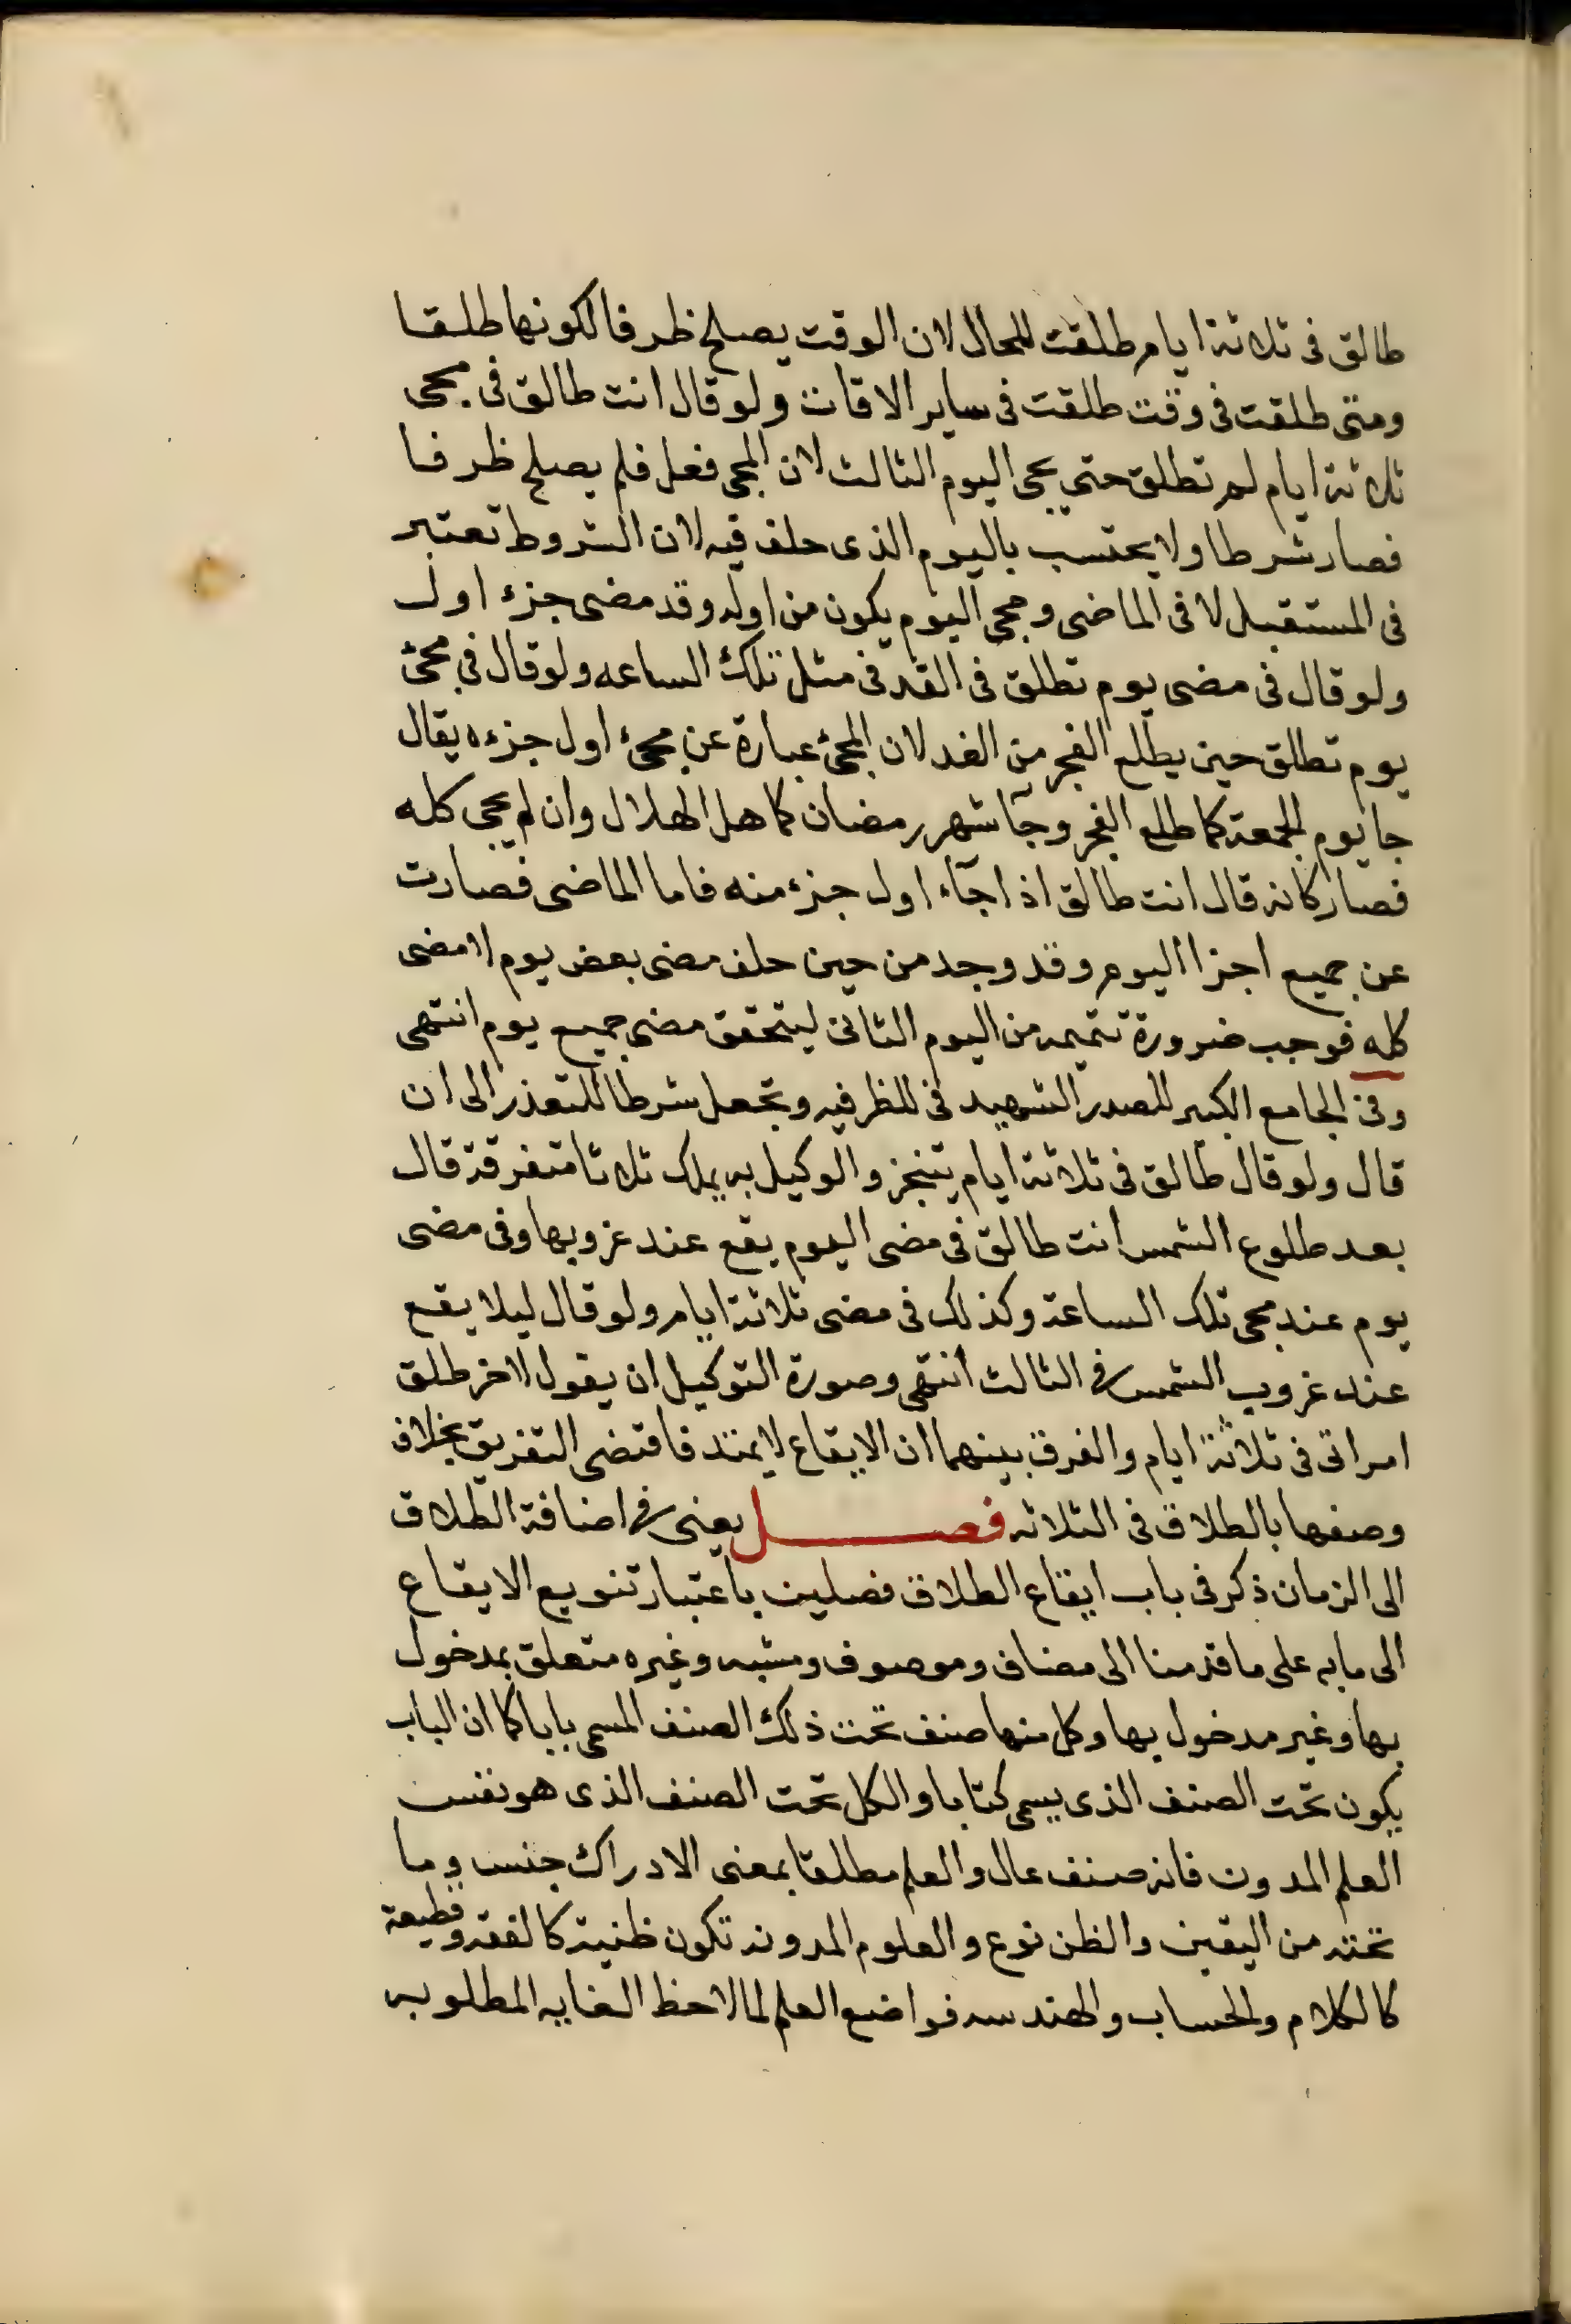 طالق فى ثلاثة ايام طلقت للحال لان الوقت يصلح ظرفا لكونها طلقا
ومتى طلقت فى وقت طلقت فى ساير الاقات ولو قال انت طالق فى مجى
ثلاثة ايام لم تطلق حتى يجى اليوم الثالث لان المجى فعل فلم يصلح ظرفا
فصار شرطا ولا يحتسب باليوم الذى حلف فيه لان الشروط تعتبر
فى المستقبل لا فى الماضى ومجى اليوم يكون من اوله وقد مضى جزء اول
ولو قال فى مضى يوم تطلق فى الغد فى مثل تلك الساعه ولو قال فى مجئ
يوم تطلق حين يطلع الفجر من الغد لان المجئ عبارة عن مجئ اول جزءه يقال
جا يوم الجمعة كما طلع الفجر وجآ شهر رمضان كما هل الهلال وان لم يجى كله
فصار كانه قال انت طالق اذا جآء اول جزء منه فاما الماضى فصارت
عن جميع اجزا اليوم وقد وجد من حين حلف مضى بعض يوم لا مضى
كله فوجب ضرورة تتميمه من اليوم الثانى ليتحقق مضى جميع يوم انتهى
وفى الجامع الكبير للصدر الشهيد فى للظرفيه وتجعل شرطا للتعذر الى ان
قال ولو قال طالق فى ثلاثة ايام يتنجز والوكيل به يملك ثلاثا متفرقة قال
بعد طلوع الشمس انت طالق فى مضى اليوم يقع عند غروبها وفى مضى
يوم عند مجى تلك الساعة وكذلك فى مضى ثلاثة ايام ولو قال ليلا يقع
عند غروب الشمس فى الثالث انتهى وصورة التوكيل ان يقول لاخر طلق
امراتى فى ثلاثة ايام والفرق بينهما ان الايقاع لا يمتد فاقتضى التفريق بخلاف
وصفها بالطلاق فى الثلاثه فصل يعنى فى اضافة الطلاق
الى الزمان ذكر فى باب ايقاع الطلاق فصلين باعتبار تنويع الايقاع
الى ما به على ما قدمنا الى مضاف وموصوف ومشبه وغيره متعلق بمدخول
بها وغير مدخول بها وكل منها صنف تحت ذلك الصنف المسمى بابا كما ان الباب
يكون تحت الصنف الذى يسمى كتابا والكل تحت الصنف الذى هو نفس
العلم المدون فانه صنف عال والعلم مطلقا بمعنى الادراك جنس وما
تحته من اليقين والظن نوع والعلوم المدونه تكون ظنية كالفقه وقطيعة
كالكلام والحساب والهندسه فواضع العلم لما لاحظ الغايه المطلوبه